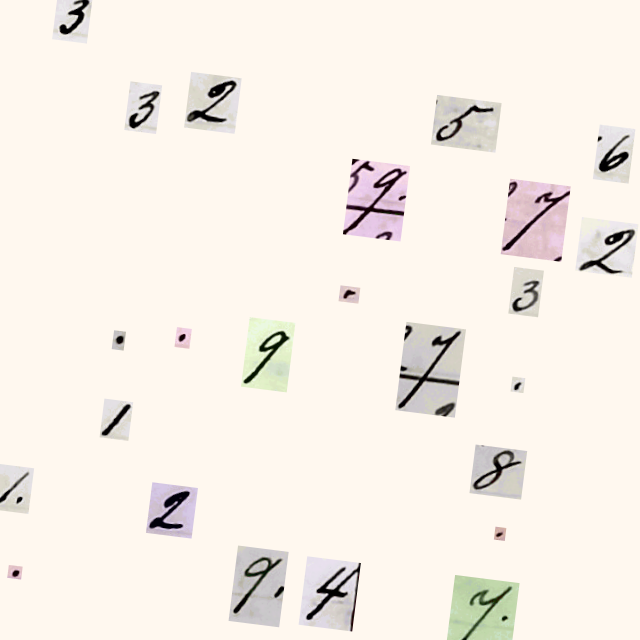 3
3 2 5 6
59. 7 2
. 3
. . 9 7 .
1 8
1. 2 .
. 9. 4 7.